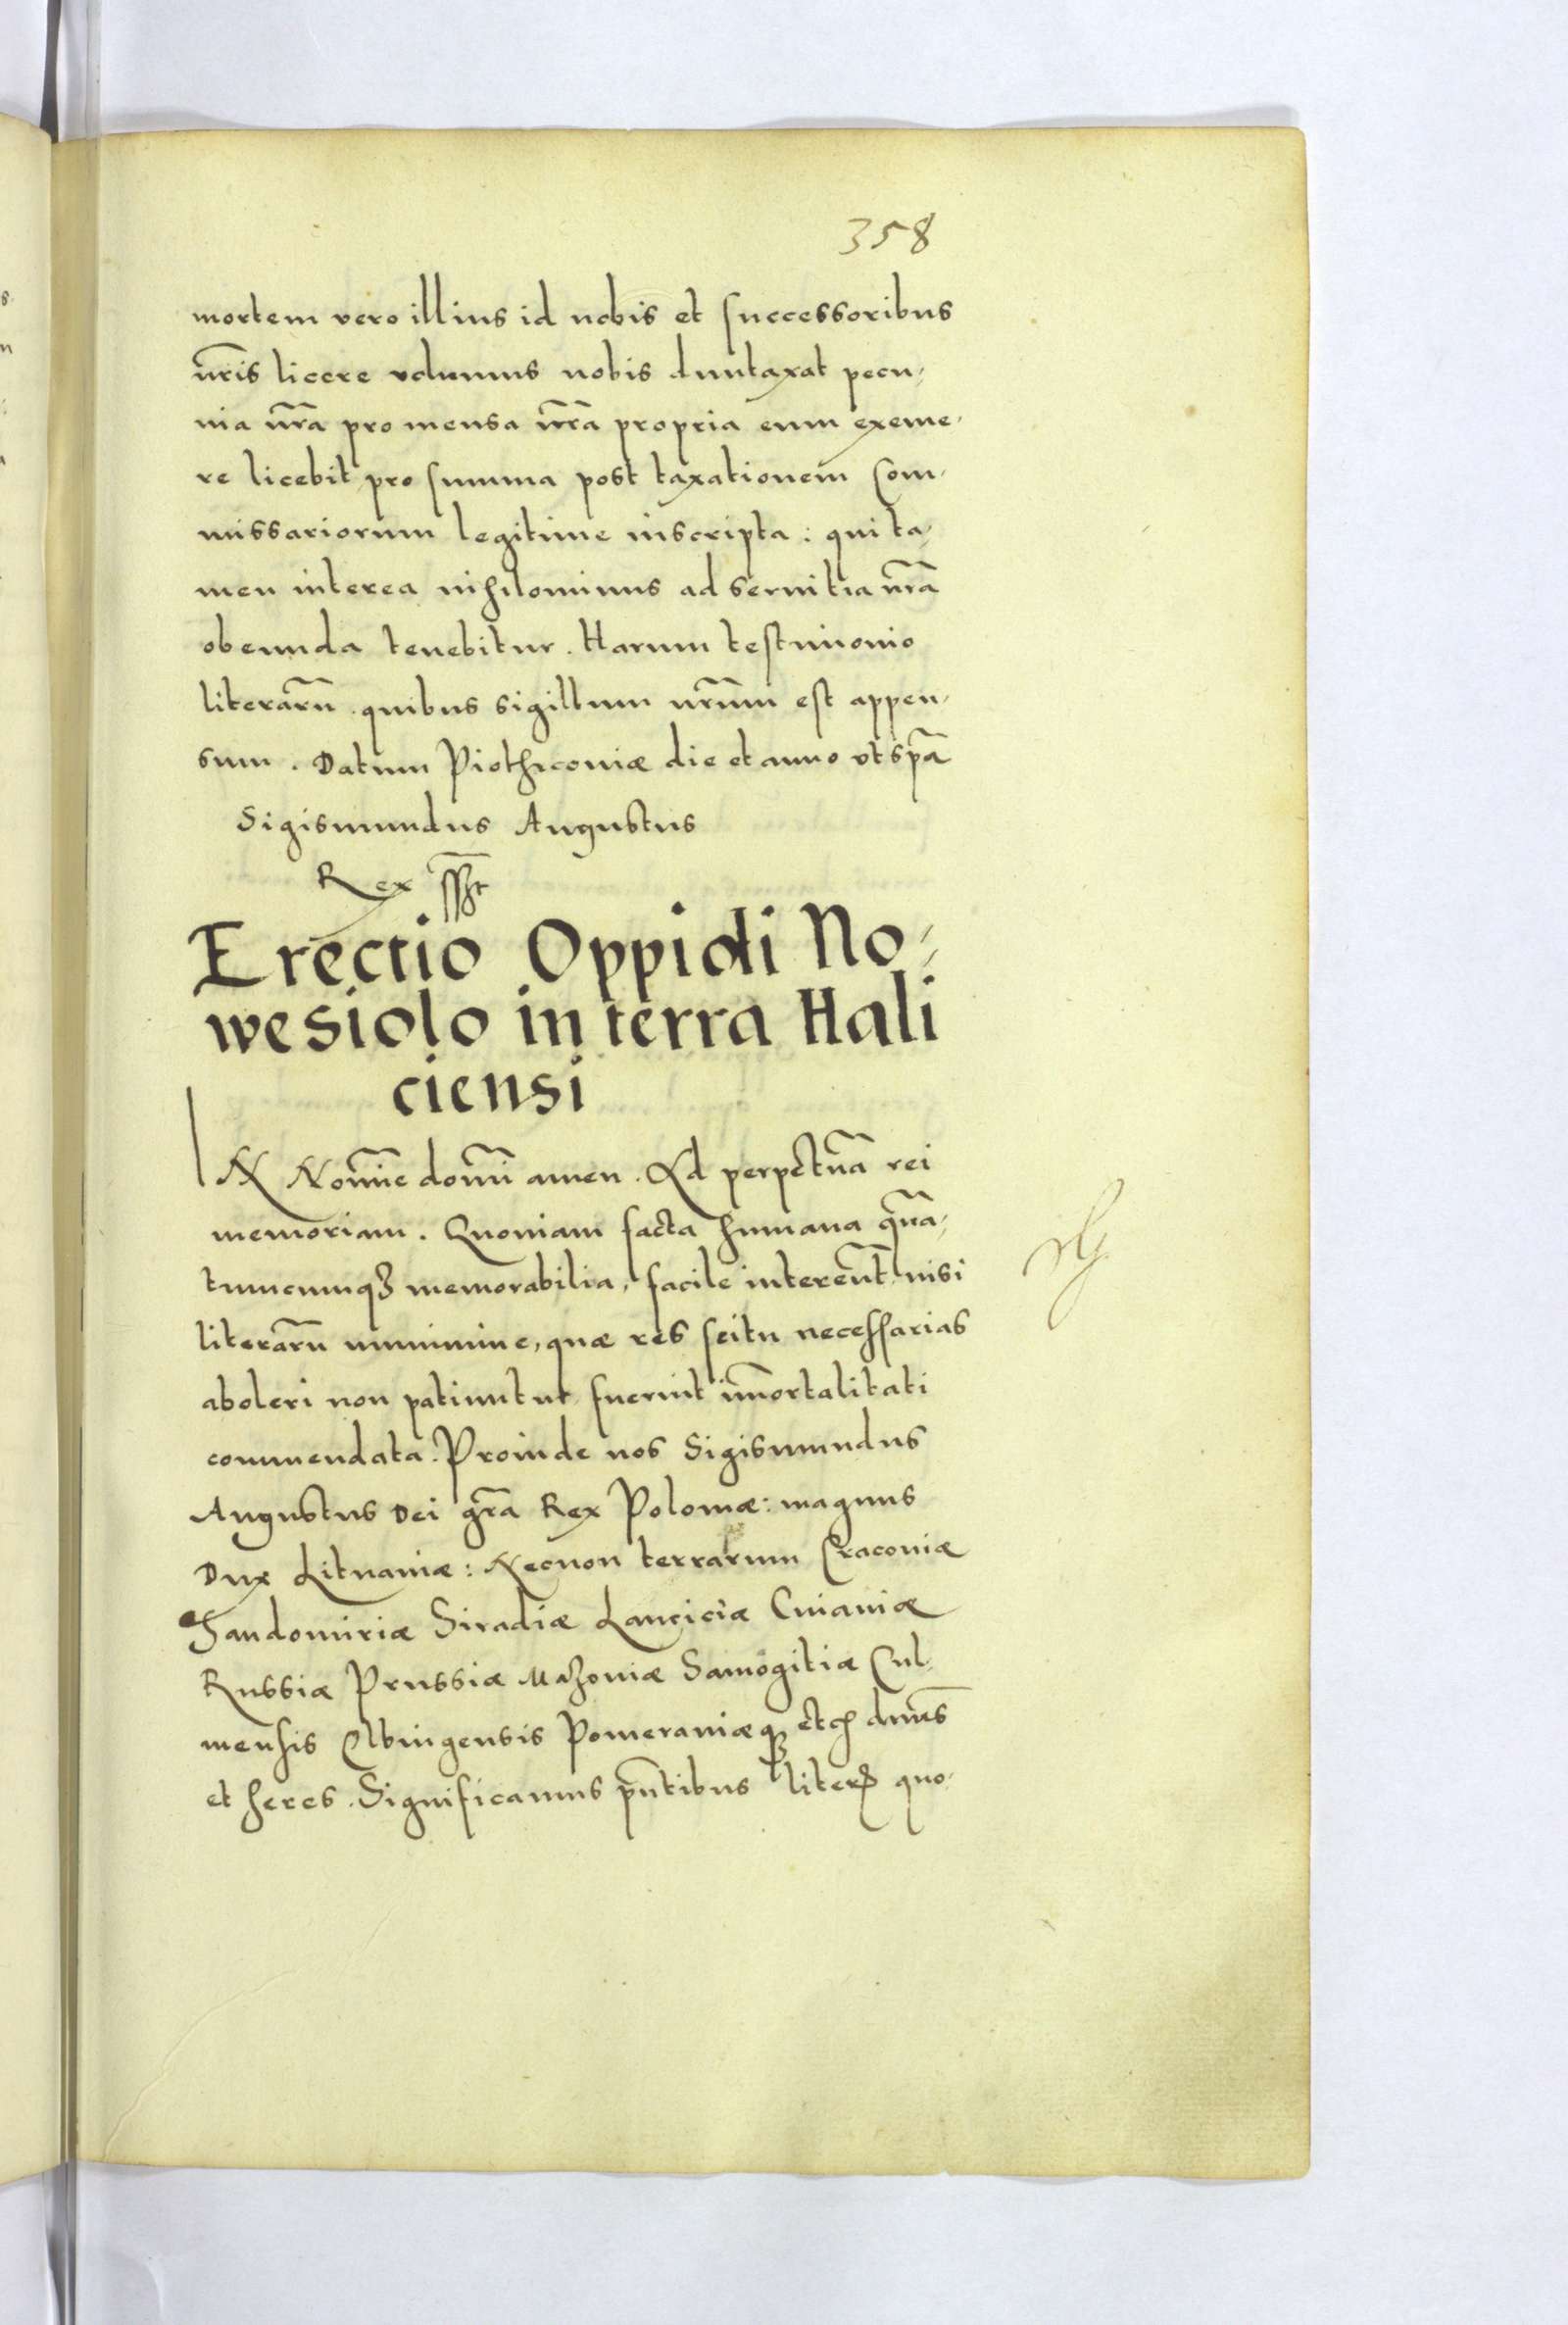 358
mortem vero illius id nobis et successoribus
nr̃is licere volumus nobis duntaxat pecu,
nia nr̃a pro mensa nr̃a propria eum exeme,
re licebit pro summa post taxationem Com,
missariorum legitime inscripta : qui ta,
men interea nihilominus ad servitia nr̃a
obeunda tenebitur . Harum testimonio
literarũ quibus sigillum nr̃um est appen,
sum . Datum Piothrconiæ die et anno vt sp̃a
Sigismundus Augustus
Rex
Erectio Oppidi No,
wesiolo in terra Hali
ciensi
IN Nomĩe domĩ amen . Ad perpetuã rei
memoriam . Quoniam facta humana quã,
tumcumqꝫ memorabilia, facile intereũt nisi
literarũ munimine, quæ res scitu necessarias
aboleri non patiuntur fuerint im̃ortalitati
commendata . Proinde nos Sigismundus
Augustus Dei gr̃a Rex Poloniæ : magnus
Dux Lituaniæ : Necnon terrarum Cracoviæ
Sandomiriæ Siradiæ Lanciciæ Cuiaviæ
Russiæ Prussiæ Mazoviæ Samogitiæ Cul,
mensis Elbingensis Pomeraniæqꝫ etc dñus
et heres . Significamus pñtibus literis quo,